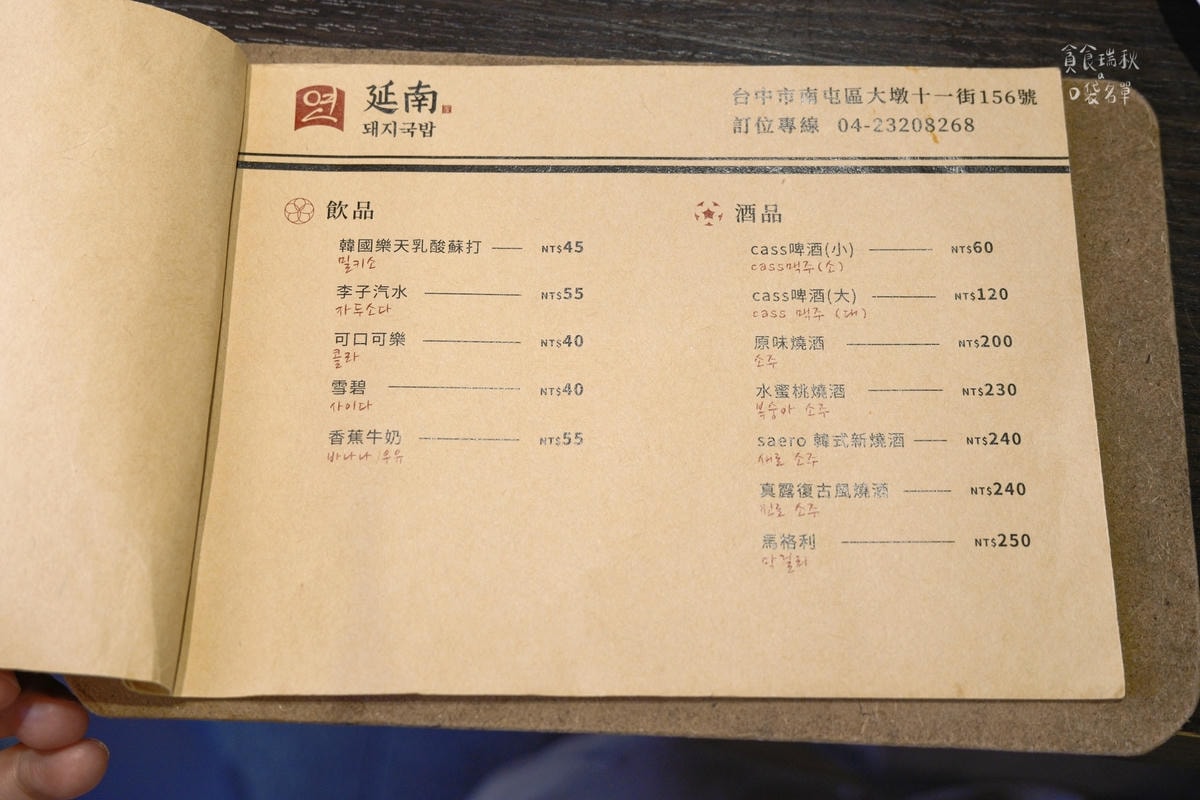 연
延南
돼지국밥
台中市南屯區大墩十一街156號
訂位專線 04-23208268
飲品
韓國樂天乳酸蘇打 NT$45
밀키소
李子汽水 NT$55
자두소다
可口可樂 NT$40
콜라
雪碧 NT$40
사이다
香蕉牛奶 NT$55
바나나 우유
酒品
cass啤酒(小) NT$60
cass맥주(소)
cass啤酒(大) NT$120
cass 맥주 (대)
原味燒酒 NT$200
소주
水蜜桃燒酒 NT$230
복숭아 소주
saero 韓式新燒酒 NT$240
새로 소주
真露復古風燒酒 NT$240
진로 소주
馬格利 NT$250
막걸리
貪食瑞秋
の
口袋名單